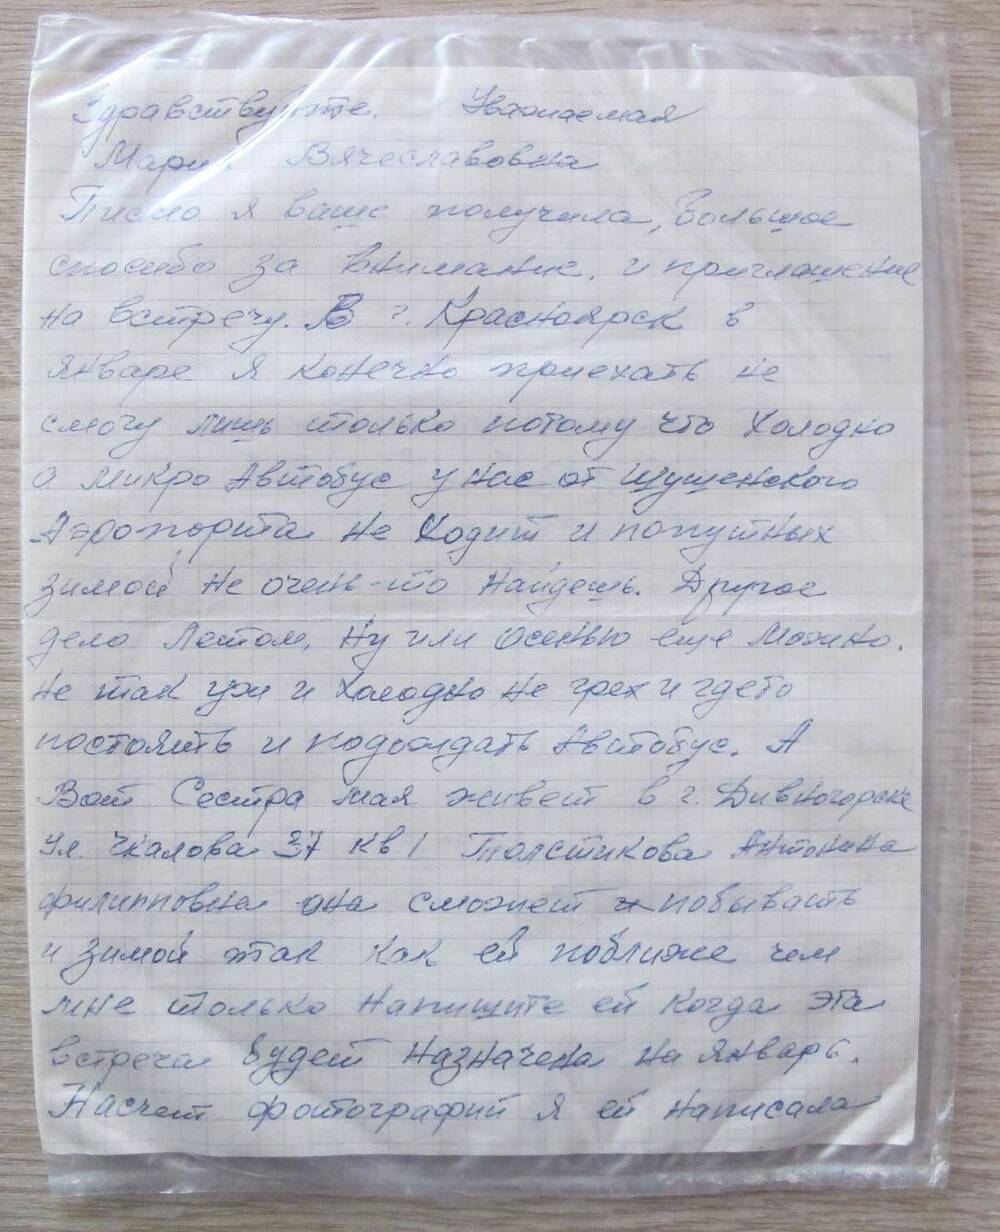 Здравствуйте. Уважаемая
Мария. Вячеславовна
Писмо я ваше получила, Большое
спосибо за внимание, и приглашение
на встречу. В г. Красноярск в
январе я конечно приехать не
смогу лишь только потому что Холодно
а Микро Автобус у нас от Шушенского
Аэропорта не Ходит и попутных
зимой не очень-то найдешь. Другое
дело Летом, ну или осенью еще можно.
не так уж и Холодно не грех и гдето
постоять и подождать Автобус. А
Вот Сестра мая живет в г. Дивногорске
ул. Чкалова 37 кв 1 Толстикова Антонина
филипповна она сможет побывать
и зимой так как ей поближе чем
мне только Напишите ей когда эта
встреча будет назначена на январь.
Насчет фотографий я ей написала